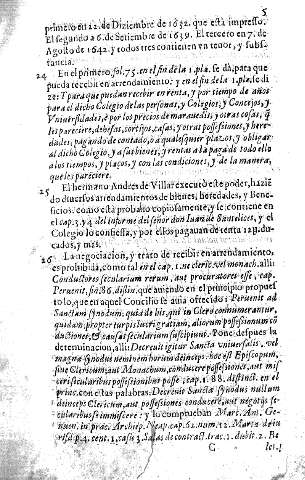 5
primero en 22. de Diziembre de 1632. que està impresso.
El segundo a 6. de Setiembre de 1639. El tercero en 7. de
Agosto de 1642. y todos tres contienen en tenor, y subs-
tancia.
24 En el primero, fol. 75. en el fin de la 1. pla. se dà, para que
pueda recibir en arrendamiento; y en el fin de la 1. pla. se di
ze: Y para que puedan recibir en renta, y por tiempo de años
para el dicho Colegio de las personas, y Colegios, y Concejos, y
Vniversidades, è por los precios de maravedis, y otras cosas, q̃
les pareciere, dehesas, cortijos, casas, y otras possessiones, y here-
dades, pagando de contado, ò a qualesquier plazos, y obligar
al dicho Colegio, y a sus bienes, y rentas a la paga de todo ello
a los tiempos, y plaços, y con las condiciones, y de la manera,
que les pareciere.
25 El hermano Andres de Villar executò este poder, hazié
do diuersos arrendamientos de bienes, heredades, y Bene-
ficios, como està probado copiosamente, y se contiene en
el cap. 3. y 4. del informe del señor don Iuan de Santelices, y el
Colegio lo confiessa, y por ellos pagauan de renta 12y. du-
cados, y mas.
26 La negociacion, y trato de recibir en arrendamiento,
es prohibida, como tal en el cap. 1. ne cleric. vel monach. alli:
Conductores sæcularium rerum, aut procuratores esse, cap.
Peruenit, fin. 86. distin. que auiendo en el principio propues
to lo, que en aquel Concilio se auia ofrecido: Peruenit ad
Sanctam synodum, quia de his, qui in Clero connumerantur,
quidam propter turpis lucri gratiam, aliorum possessionum cõ
ductiones, & causas sæcularium suscipiunt. Pone despues la
determinacion, alli: Decreuit igitur Sancta vniuersalis, vel
magna synodus neminem horum deinceps, hoc est Episcopum,
siue Clericum, aut Monachum, conducere possessiones, aut mis
ceri sæcularibus possessionibus posse, cap. 1. 88. distinct. en el
princ. con estas palabras: Decreuit Sancta synodus nullum
deinceps Clericum, aut possessiones conducere, aut negotijs sæ-
cularibus se immiscere: y lo comprueban Mart. An. Ge-
nuen. in prac. Archiep. Neap. cap. 62. num. 12. Marta de iu
risd. p. 4. cent. 1. casu 3. Salas de contract. trac. 1. dubit. 2. Re
C